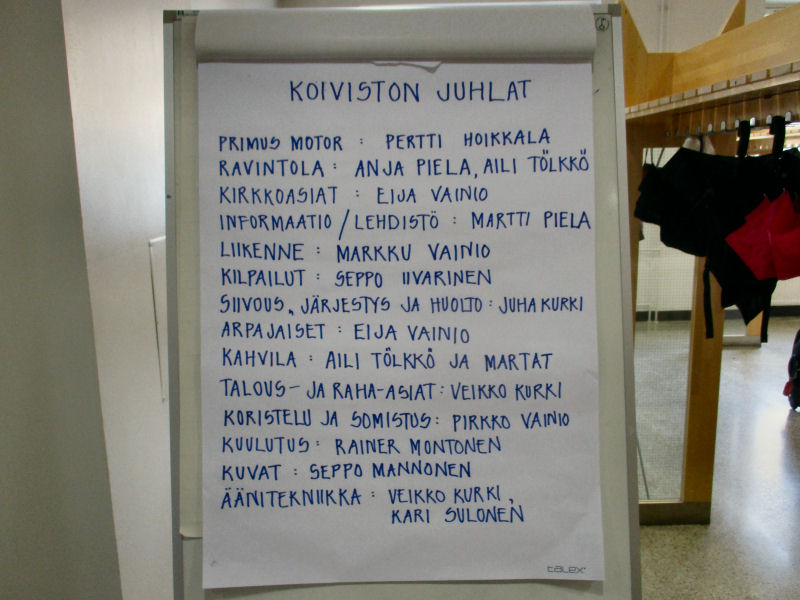 KOIVISTON JUHLAT
PRIMUS MOTOR : PERTTI HOIKKALA
RAVINTOLA : ANJA PIELA, AILI TÖLKKÖ
KIRKKOASIAT : EIJA VAINIO
INFORMAATIO / LEHDISTÖ : MARTTI PIELA
LIIKENNE : MARKKU VAINIO
KILPAILUT : SEPPO IIVARINEN
SIIVOUS, JÄRJESTYS JA HUOLTO : JUHA KURKI
ARPAJAISET : EIJA VAINIO
KAHVILA : AILI TÖLKKÖ JA MARTAT
TALOUS- JA RAHA-ASIAT : VEIKKO KURKI
KORISTELU JA SOMISTUS : PIRKKO VAINIO
KUULUTUS : RAINER MONTONEN
KUVAT : SEPPO MANNONEN
ÄÄNITEKNIIKKA : VEIKKO KURKI,
KARI SULONEN
talex